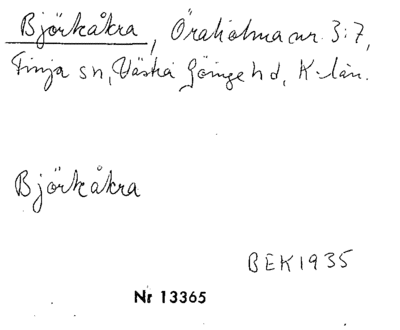 Björkåkra, Öraholma nr. 3:7,
Finja sn, Västra Göinge hd, K-län.
Björkåkra
BEK 1935
Nr 13365